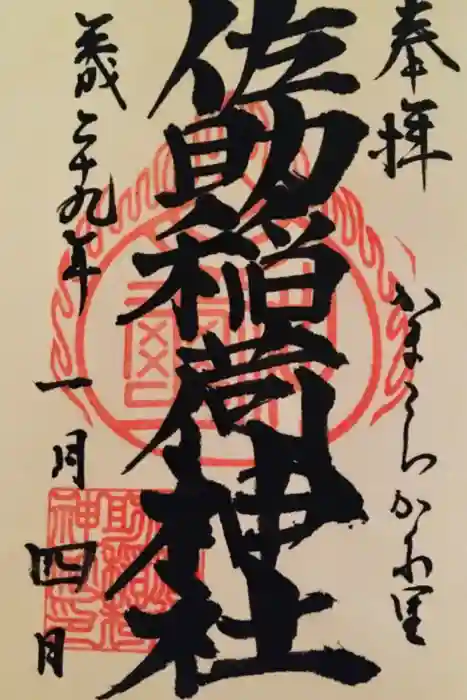 奉拝
かまくらかくれ里
佐助稲荷神社
平成二十九年
一月四日